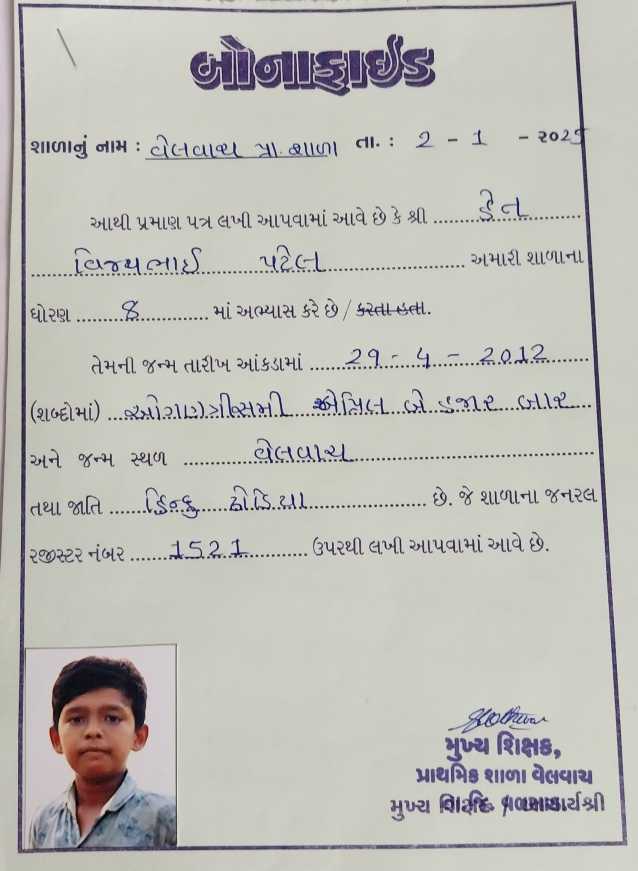 બોનાફાઈડ
શાળાનું નામ : વેલવાચ પ્રા. શાળા તા. : 2 - 1 - ૨૦25
આથી પ્રમાણ પત્ર લખી આપવામાં આવે છે કે શ્રી ......... હેત .........
......... વિજયભાઈ ......... પટેલ ......... અમારી શાળાના
ધોરણ ......... 8 ......... માં અભ્યાસ કરે છે / કરતા હતા.
તેમની જન્મ તારીખ આંકડામાં ......... 29 - 4 - 2012 .........
(શબ્દોમાં) ... ઓગણત્રીસમી એપ્રિલ બે હજાર બાર ...
અને જન્મ સ્થળ ......... વેલવાચ .........
તથા જાતિ ......... હિન્દુ ધોડિયા ......... છે. જે શાળાના જનરલ
રજીસ્ટર નંબર ......... 1521 ......... ઉપરથી લખી આપવામાં આવે છે.
મુખ્ય શિક્ષક,
પ્રાથમિક શાળા વેલવાચ
મુખ્ય